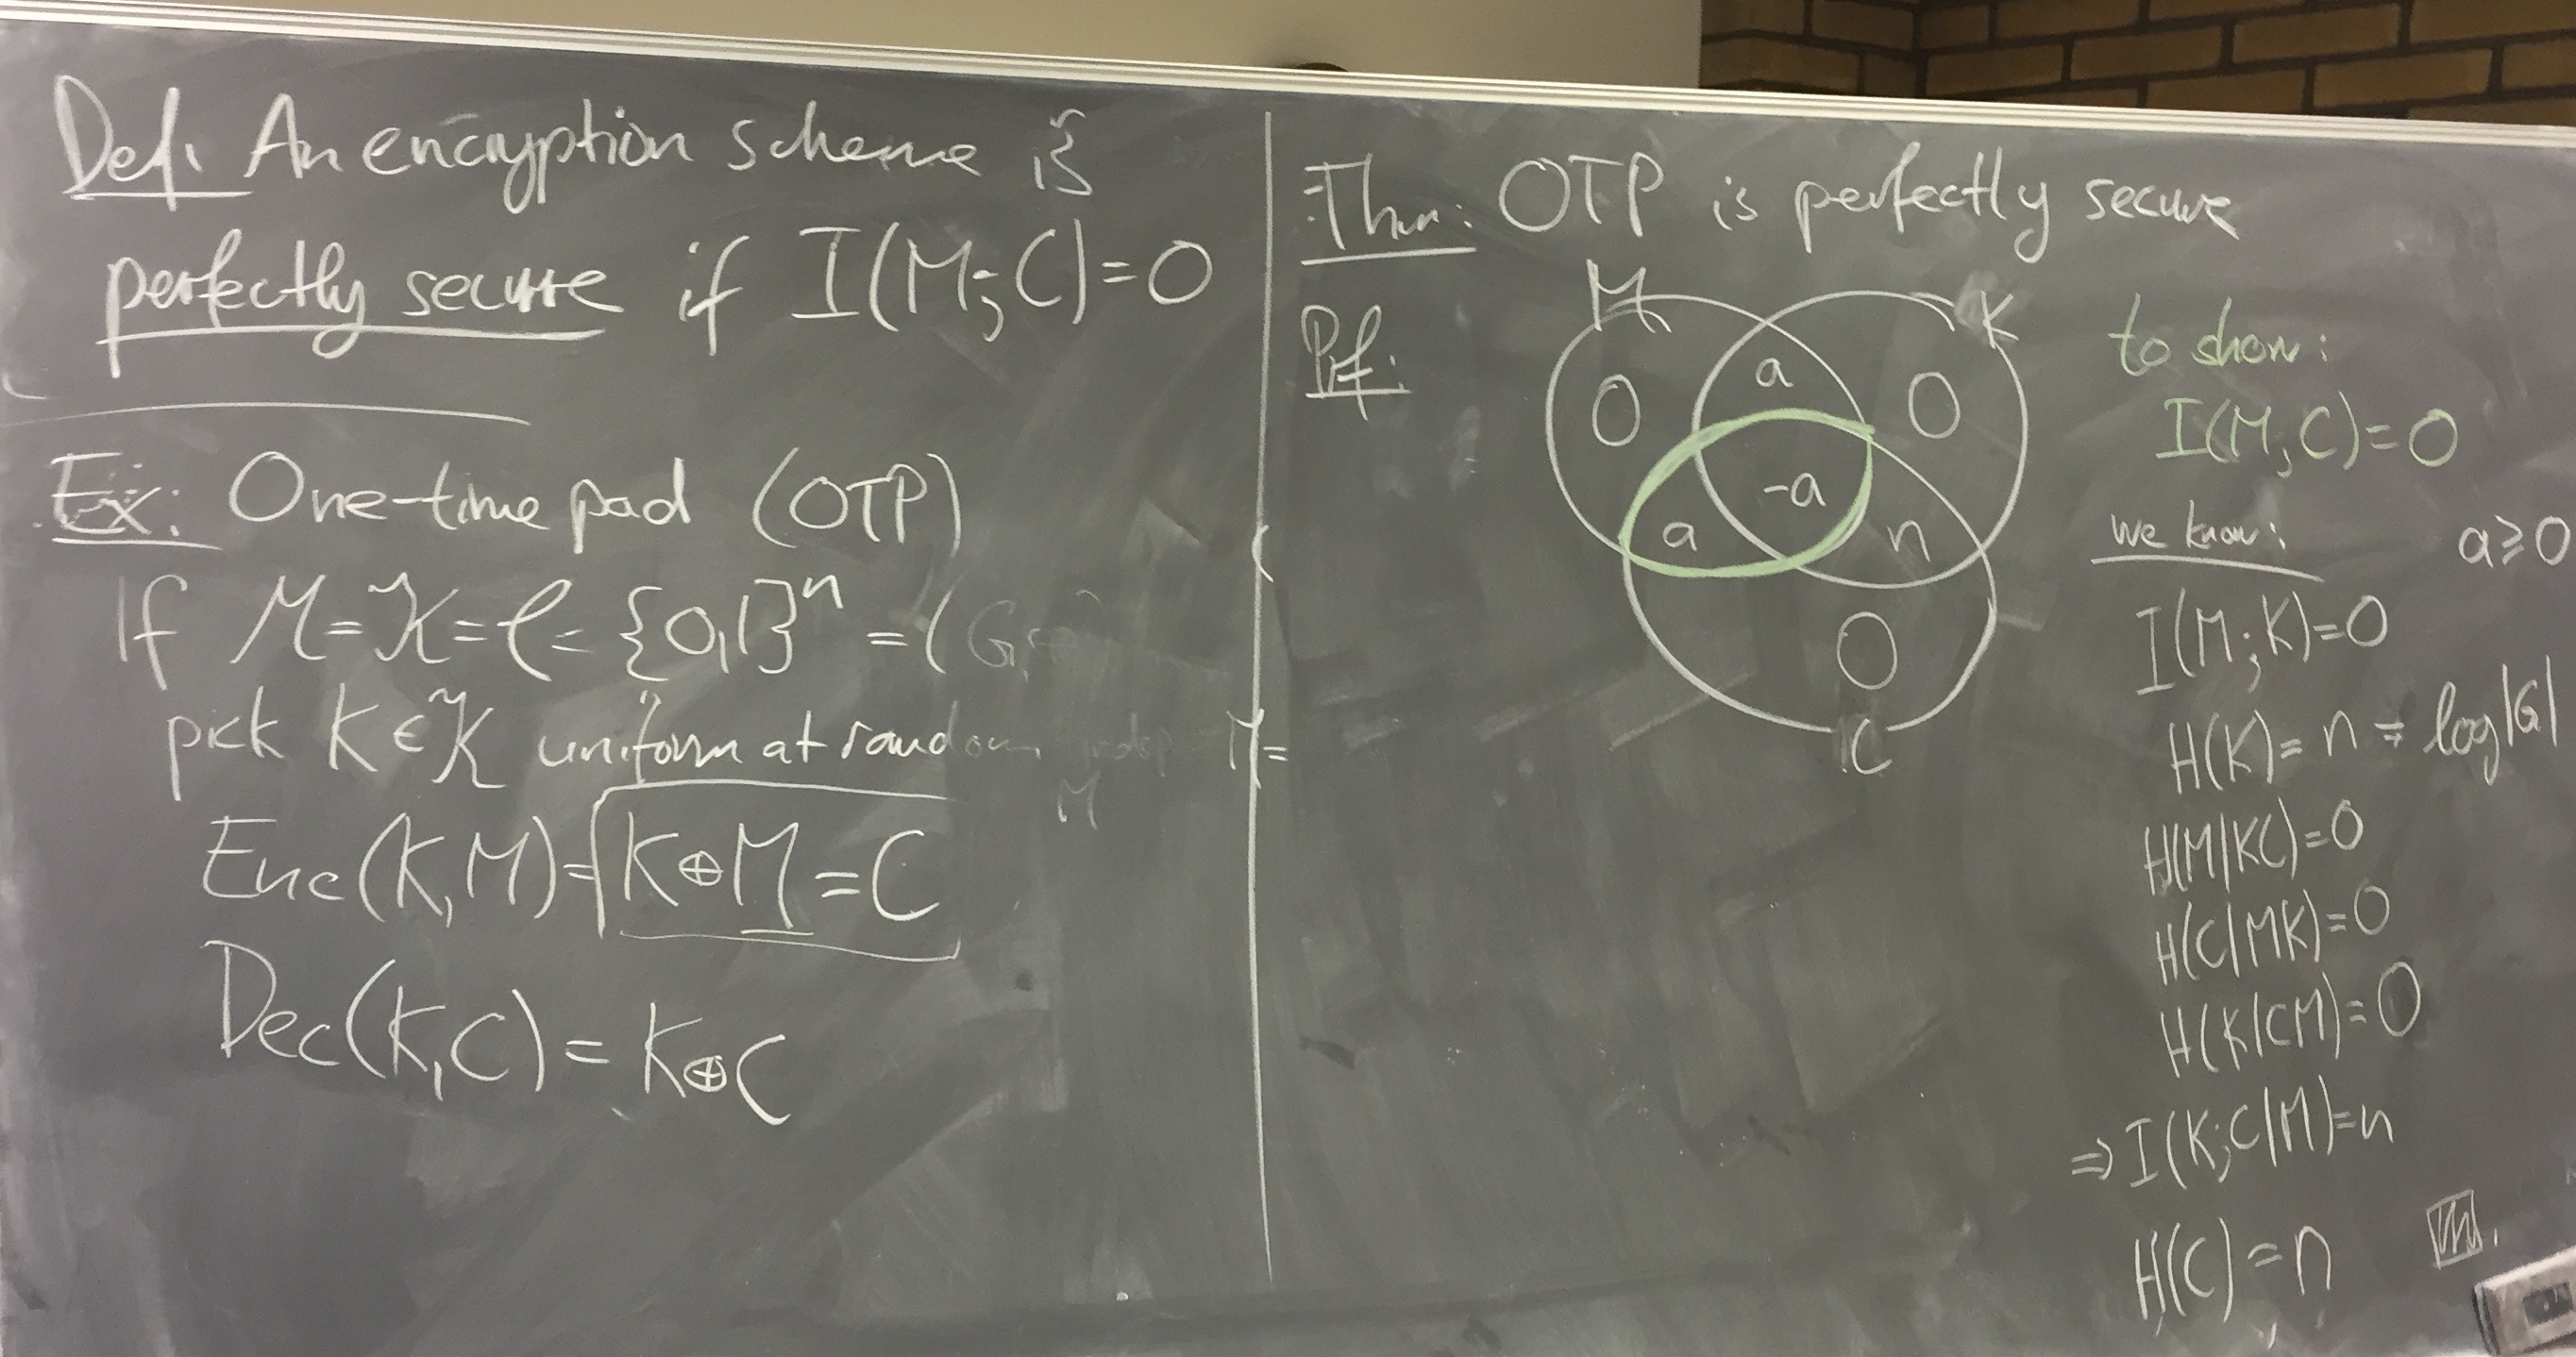 Def. An encryption scheme is
perfectly secure if I(M;C)=0
Ex: One-time pad (OTP)
If M=K=C={0,1}ⁿ = (G,
pick K∈K uniform at random indep
M
Enc(K,M)= K⊕M =C
Dec(K,C) = K⊕C
Thm: OTP is perfectly secure
Prf:
M
K
a
0
0
-a
a
n
0
C
to show:
I(M;C)=0
we know:
a≥0
I(M;K)=0
H(K)= n = log|G|
H(M|KC)=0
H(C|MK)=0
H(K|CM)=0
⇒ I(K;C|M)=n
H(C) = n